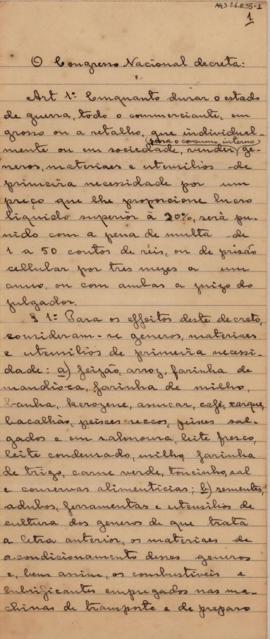 1
O Congresso Nacional decreta:
Art 1º Emquanto durar o estado
de guerra, todo o commerciante, em
grosso ou a retalho, que individual-
(para o consumo interno)
mente ou em sociedade, vender, ge-
neros, materiaes e utensilios de
primeira necessidade por um
preço que lhe proporcione lucro
liquido superior á 20%, será pu-
nido com a pena de multa de
1 a 50 contos de réis, ou de prisão
cellular por tres mezes a um
anno, ou com ambas a juizo do
julgador.
§ 1º Para os effeitos deste decreto,
consideram-se generos, materiaes
e utensilios de primeira necessi-
dade: a) feijão, arroz, farinha de
mandioca, farinha de milho,
banha, kerozene, assucar, café, xarque,
bacalháo, peixes seccos, peixes sal-
gados e em salmoura, leite fresco,
leite condensado, milho, farinha
de trigo, carne verde, toucinho, sal
e conservas alimenticias; b) sementes,
adubos, ferramentas e utensilios de
cultura dos generos de que trata
a letra anterior, os materiaes de
acondicionamento desses generos
e, bem assim, os combustiveis e
lubrificantes empregados nas ma-
chinas de transporte e de preparo